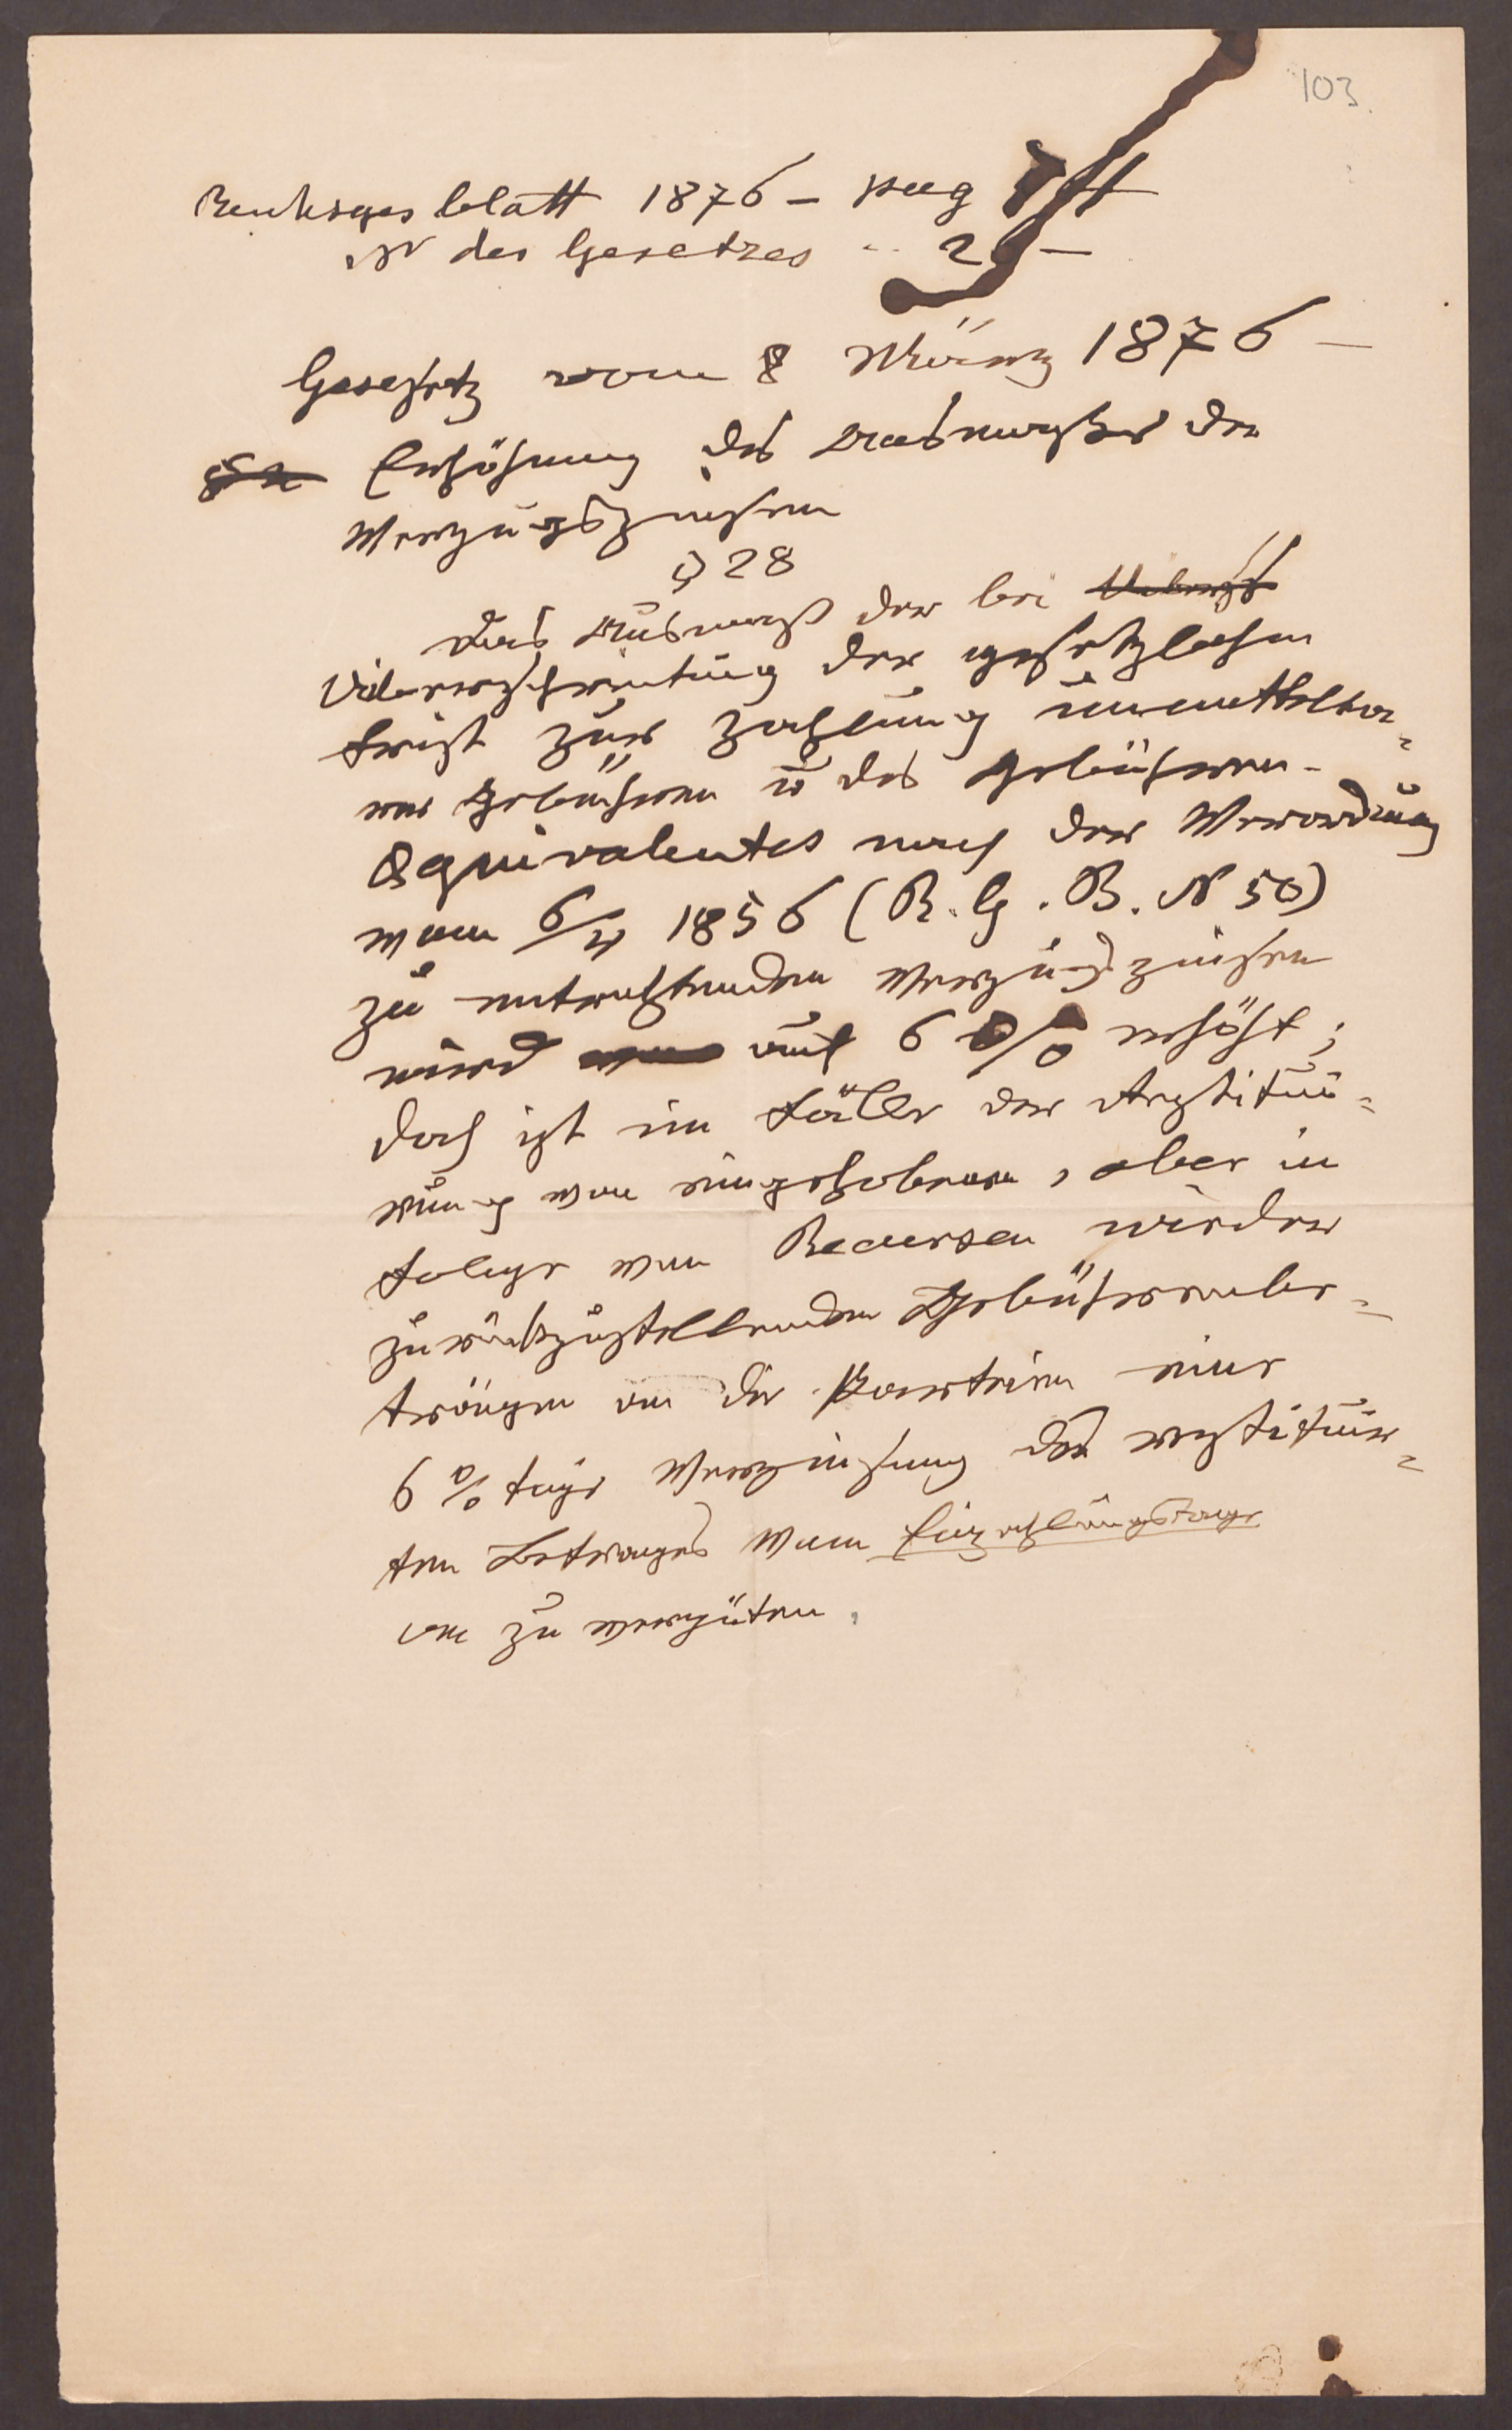 103.
Reichsges blatt 1876 – pag
No des Gesetzes " 2 –
Gesetz vom 8 März 1876 –
Erhöhung des Ausmaßes der
Verzugszinsen
§ 28
Das Ausmaß der bei
Ueberschreitung der gesetzlichen
Frist zur Zahlung unmittelba=
rer Gebühren u des Gebühren-
Äquivalentes nach der Verordnung
vom 1856 (R. G. B. N 50)
zu entrichtenden Verzugszinsen
wird auf 6 % erhöht;
doch ist im Falle der Restitui=
rung von eingehobenen, aber in
Folge von Recursen wieder
zurückzustellenden Gebührenbe=
trägen an die Parteien eine
6 %tige Verzinsung des restituir=
ten Betrages vom Einzahlungstage
an zu vergüten.